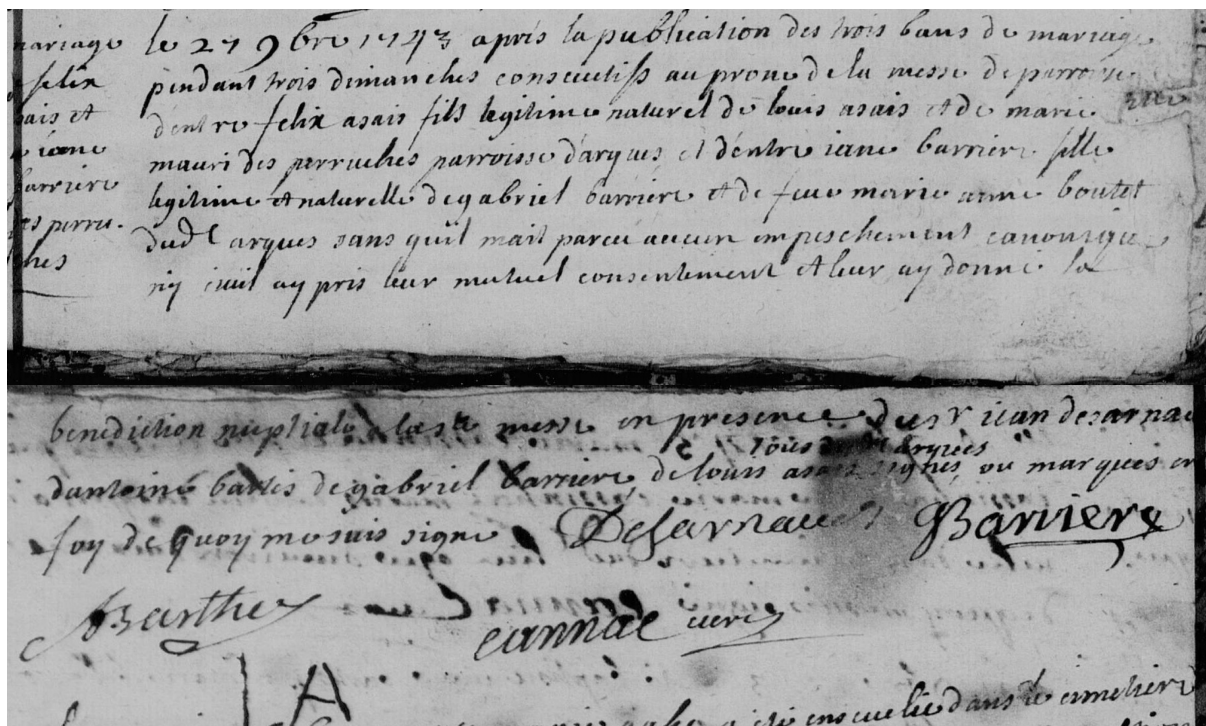 mariage
felix
asais et
iane
barriere
des perru-
ches
le 27 9bre 1743 après la publication des trois bans de mariage
pendant trois dimanches consecutifs au prone de la messe de parroisse
dentre felix asais fils legitime naturel de louis asais et de marie
mauri des perruches parroisse darques et dentre iane barriere fille
legitime et naturelle de gabriel barriere et de feue marie anne boutet
dudt arques sans quil mait pareu aucun empeschement canonique
ny civil ay pris leur mutuel consentement et leur ay donne la
benediction nuptiale la ste messe en presence du sr iean desarnau
tous darques
dantoine bartes de gabriel barriere de louis asais signes ou marques en
foy de quoy me suis signe Desarnaud GBarriere
Barthe
cannac cure
A
ensevelie dans le cimetiere